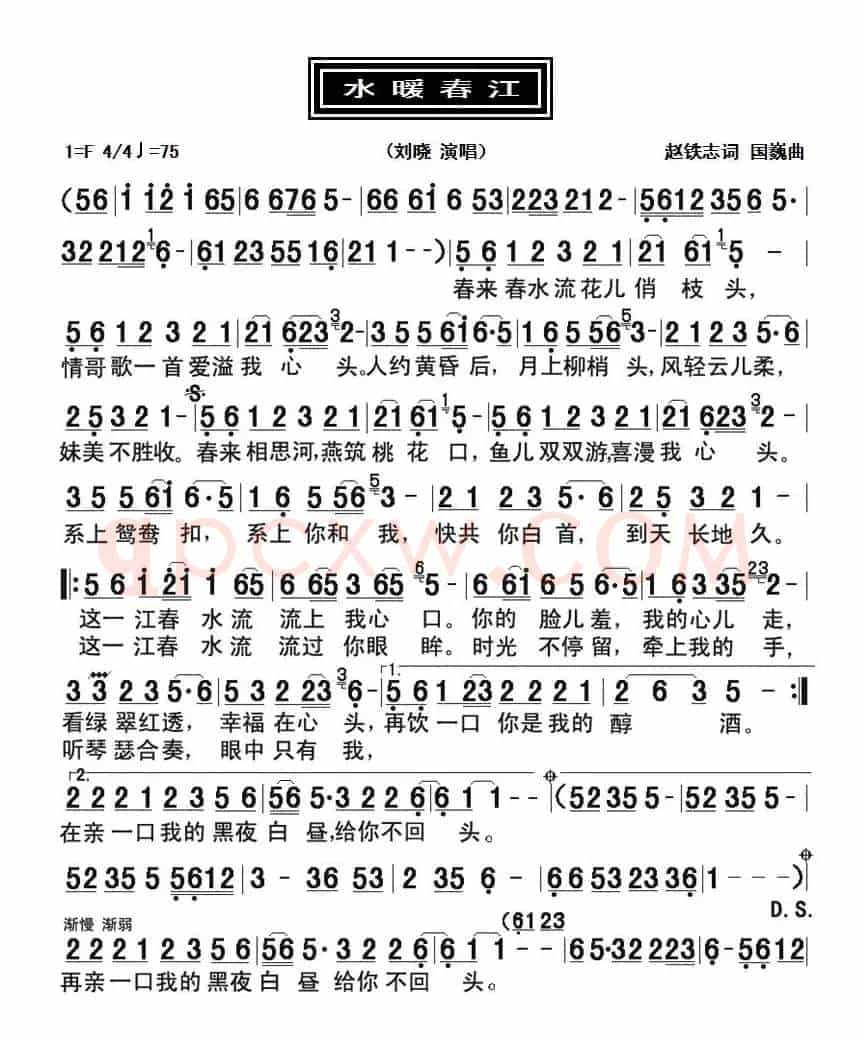 水暖春江
1=F 4/4♩=75 (刘晓 演唱) 赵铁志词 国巍曲
(56|1 12 1 65|6 676 5-|66 61 6 53|223 212-|5612 356 5·|
32 212 1 6-|61 23 55 16|21 1--)|5 6 1 2 3 2 1|21 61 1 5 -|
春来春水流花儿俏枝头,
5 6 1 2 3 2 1|21 623 3 2-|3 5 5 61 6·5|1 6 5 56 5 3-|2 1 2 3 5·6|
情哥歌一首爱溢我心头。人约黄昏后,月上柳梢头,风轻云儿柔,
𝄋
2 5 3 2 1-|5 6 1 2 3 2 1|21 61 1 5-|5 6 1 2 3 2 1|21 623 3 2-|
妹美不胜收。春来相思河,燕筑桃花口,鱼儿双双游,喜漫我心头。
3 5 5 61 6·5|1 6 5 56 5 3-|2 1 2 3 5·6|2 5 3 2 1-|
系上鸳鸯扣,系上你和我,快共你白首,到天长地久。
‖:5 6 1 21 1 65|3 65 3 65 6 5-|6 61 6 5 6·5|1 6 3 35 23 2-|
这一江春水流流上我心口。你的脸儿羞,我的心儿走,
这一江春水流流过你眼眸。时光不停留,牵上我的手,
3 3 2 3 5·6|5 3 2 23 3 6-|5 6 1 23 2 2 2 1|2 6 3 5 -:‖
1.
看绿翠红透,幸福在心头,再饮一口你是我的醇酒。
听琴瑟合奏,眼中只有我,
2.
2 2 2 1 2 3 5 6|56 5·3 2 2 6|6 1 1--|(52 35 5-|52 35 5-|
在亲一口我的黑夜白昼,给你不回头。
52 35 5 5612|3 - 36 53|2 2 35 6 -|66 53 23 36|1---)|
D.S.
渐慢 渐弱 (61 23
2 2 2 1 2 3 5 6|56 5·3 2 2 6|6 1 1--|5·3 32 223|6·5 5612|
再亲一口我的黑夜白昼给你不回头。
qpcxw.COM